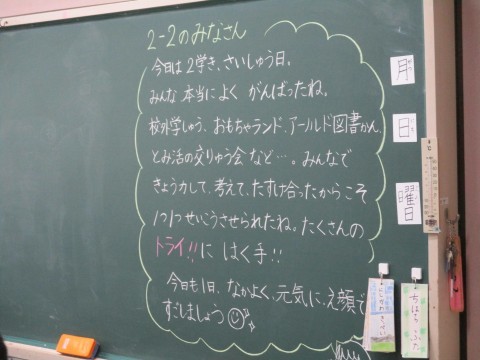 2-2のみなさん
今日は2学き、さいしゅう日。
みんな本当によくがんばったね。
校外学しゅう、おもちゃランド、アールド図書かん、
とみ活の交りゅう会など…。みんなで
きょう力して、考えて、たすけ合ったからこそ
1つ1つせいこうさせられたね。たくさんの
トライ!!にはく手!!
今日も1日、なかよく、元気に、え顔で
すごしましょう
月
日
曜日